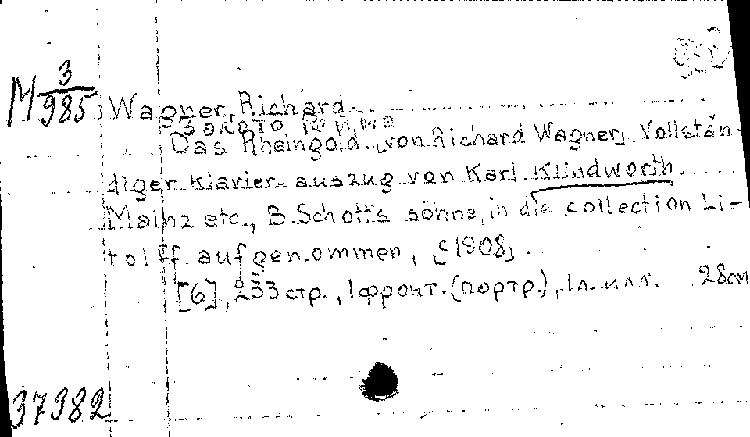 M 3/985 Wagner, Richard
Das Rheingold von Richard Wagner, Vollstän-
diger Klavier-auszug von Karl Klindworth
Mainz etc., B. Schott's söhne, in die collection Li-
tolff aufgenommen, [1908]
[6], 233 стр., 1 фронт. (портр.), 1 л. илл. 28 cm
37982